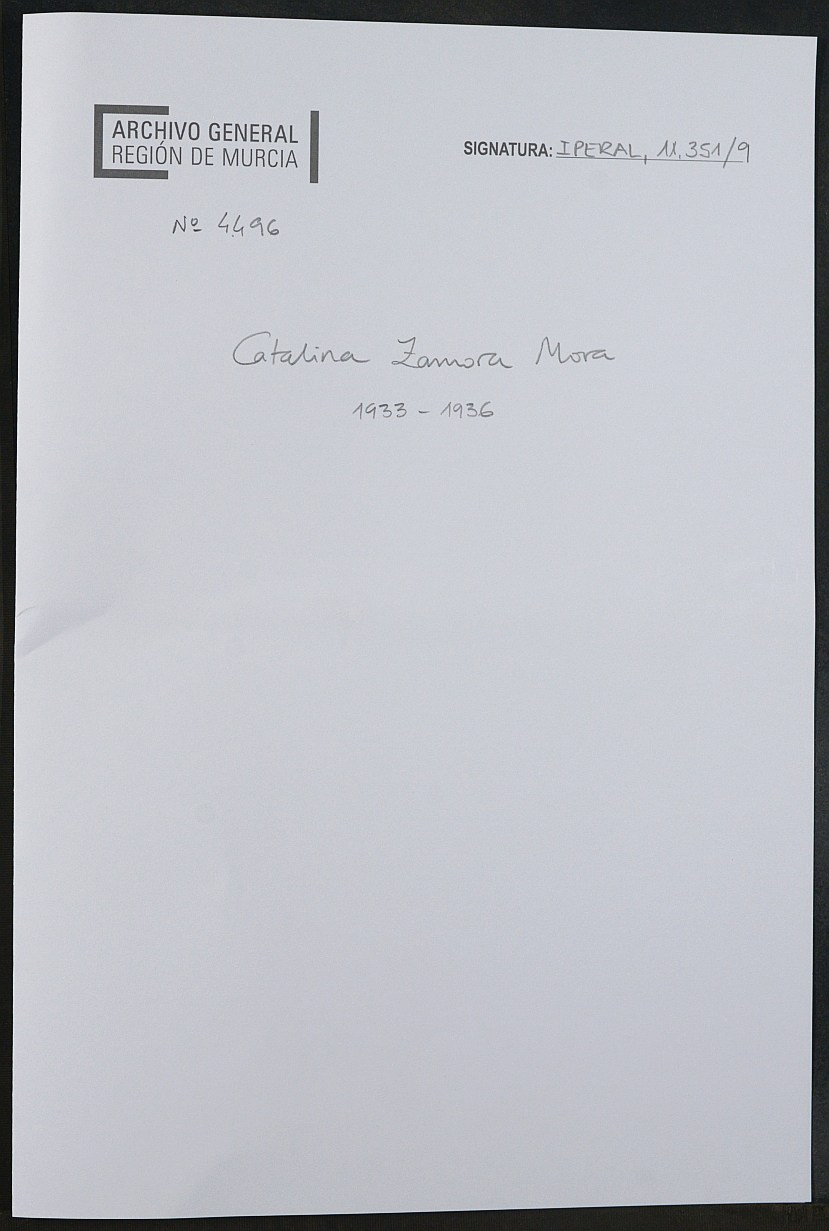 ARCHIVO GENERAL
REGIÓN DE MURCIA
SIGNATURA: IPERAL, 11.351/9
Nº 4.496
Catalina Zamora Mora
1933 - 1936